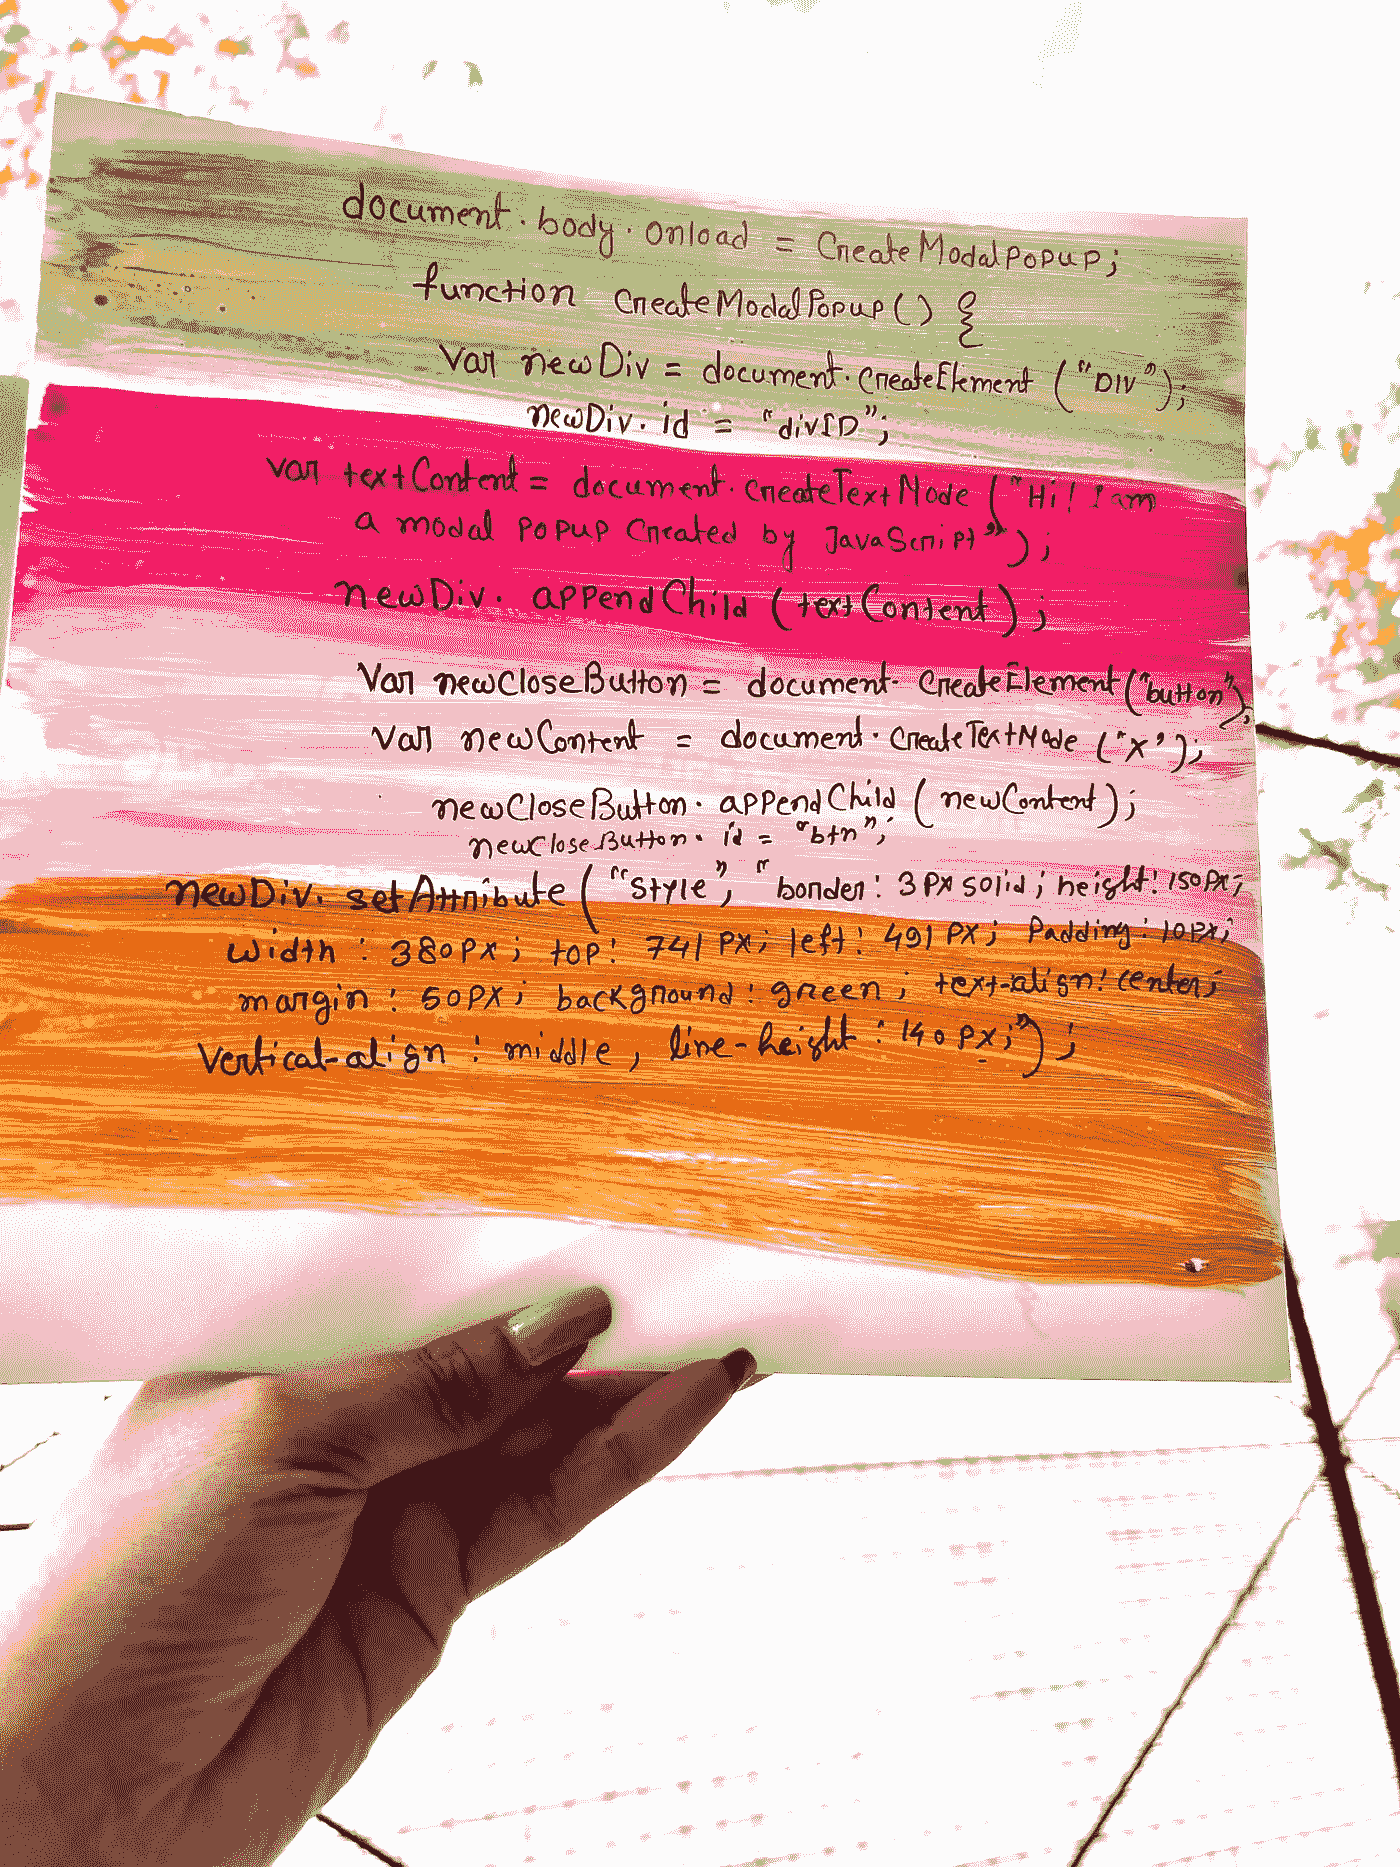 document.body.onload = CreateModalPopup;
function CreateModalPopup() {
Var newDiv = document.createElement ("DIV");
newDiv.id = "divID";
var textContent = document.createTextNode ("Hi! I am
a modal popup created by JavaScript");
newDiv.appendChild (textContent);
Var newCloseButton = document.createElement ("button");
Var newContent = document.createTextNode ("X");
newCloseButton.appendChild (newContent);
newCloseButton.id = "btn";
newDiv.setAttribute ("style", "border: 3px solid; height: 150px;
width : 380px; top: 741 px; left: 491 px; Padding: 10px;
margin : 50px; background: green; text-align: center;
Vertical-align : middle, line-height : 140px;");